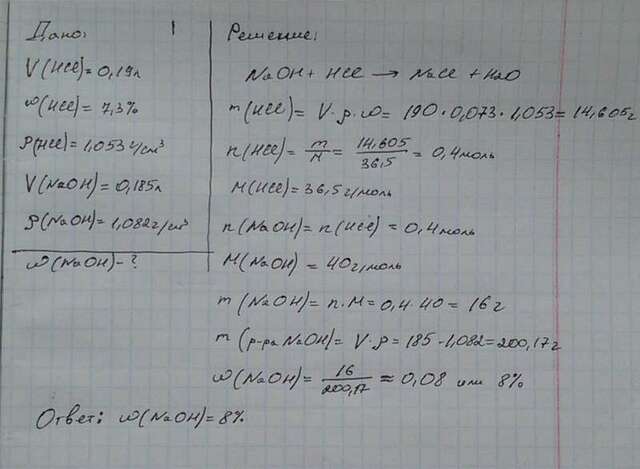 Дано:
V(HCl)=0,19л
ω(HCl)=7,3%
ρ(HCl)=1,053г/см³
V(NaOH)=0,185л
ρ(NaOH)=1,082г/см³
ω(NaOH)-?
1
Решение:
NaOH + HCl → NaCl + H2O
m(HCl) = V·ρ·ω = 190·0,073·1,053 = 14,605г
n(HCl) = m/M = 14,605/36,5 = 0,4моль
M(HCl) = 36,5г/моль
n(NaOH) = n(HCl) = 0,4моль
M(NaOH) = 40г/моль
m(NaOH) = n·M = 0,4·40 = 16г
m(р-ра NaOH) = V·ρ = 185·1,082 = 200,17г
ω(NaOH) = 16/200,17 ≈ 0,08 или 8%
Ответ: ω(NaOH)=8%